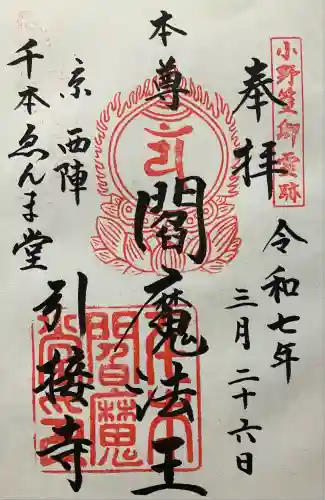 小野篁御霊跡
奉拝
令和七年
三月二十六日
本尊
閻魔法王
京西陣
千本ゑんま堂
引接寺